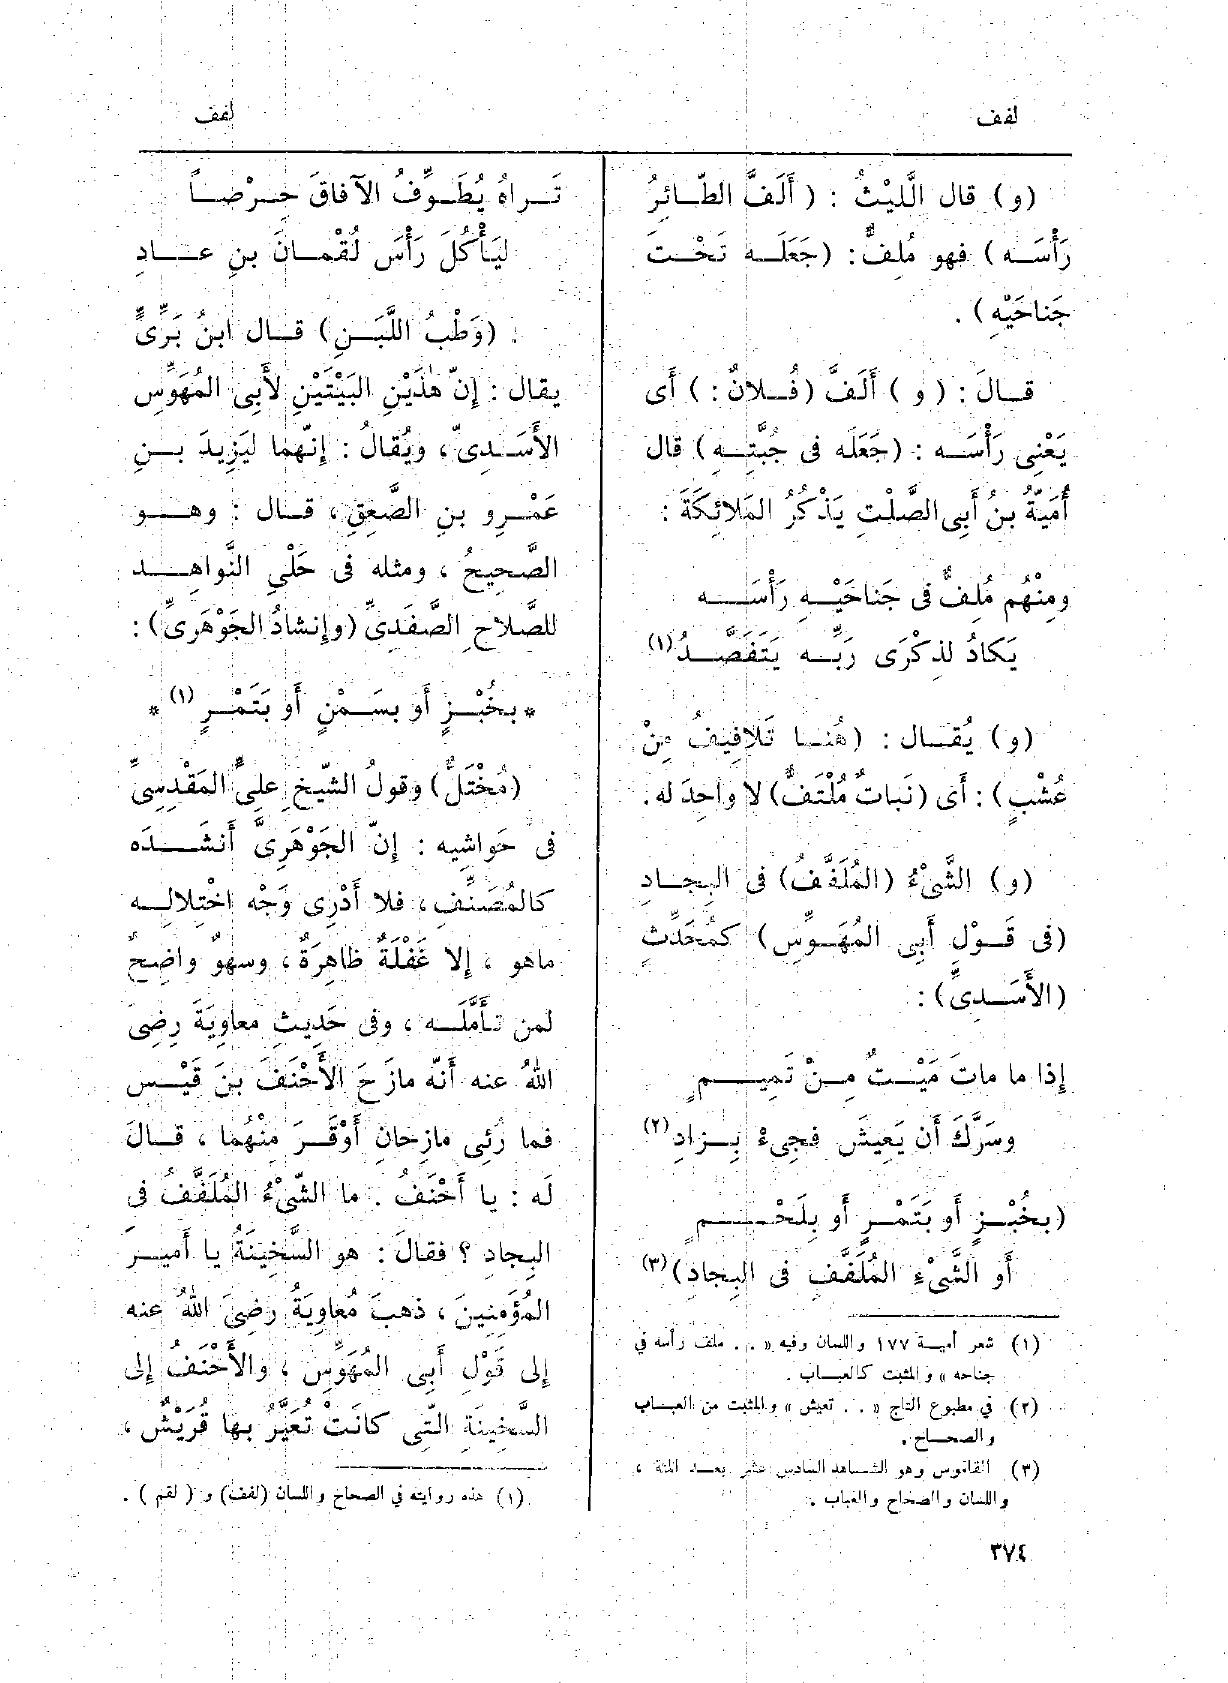 لفف
لفف
(و) قال اللَّيْثُ : (أَلَفَّ الطَّائِرُ
رَأْسَه) فهو مُلِفٌّ : (جَعَلَه تَحْت
جَناحَيْهِ) .
قالَ : (و) أَلَفَّ (فُلانٌ :) أَى
يَعْنِى رَأْسَه : (جَعَلَه فى جُبَّتِهِ) قال
أُمَيَّةُ بنُ أَبِى الصَّلْتِ يَذْكُرُ المَلائِكَةَ :
ومِنْهُم مُلِفٌّ فى جَناحَيْهِ رَأْسَه
يَكادُ لذِكْرَى رَبِّه يَتَفَصَّدُ (١)
(و) يُقال : (هُنا تَلافِيفُ مِنْ
عُشْبٍ) : أَى (نَباتٌ مُلْتَفٌّ) لا واحِدَ له .
(و) الشَّىْءُ (المُلَفَّفُ) فى البِجادِ
(فى قَوْلِ أَبِى المُهَوِّسِ) كمُحَدِّثٍ
(الأَسَدِىِّ) :
إذا ما ماتَ مَيْتٌ مِنْ تَمِيمٍ
وسَرَّكَ أَن يَعِيشَ فجِىءْ بِزادِ (٢)
(بخُبْزٍ أَو بتَمْرٍ أَو بِلَحْمٍ
أَو الشَّىْءِ المُلَفَّفِ فى البِجادِ) (٣)
(١) شعر أمية ١٧٧ واللسان وفيه « . . ملف رأسه في
جناحه » والمثبت كالعباب .
(٢) في مطبوع التاج « . . تعيش » والمثبت من العباب
والصحاح .
(٣) القاموس وهو الشاهد السادس عشر بعد المئة ،
واللسان والصحاح والعباب .
٣٧٤
تَراهُ يُطَوِّفُ الآفاقَ حِرْصاً
ليَأْكُلَ رَأْسَ لُقْمانَ بنِ عادِ
: (وَطْبُ اللَّبَنِ) قال ابنُ بَرِّىٍّ
يقال : إنّ هٰذَيْنِ البَيْتَيْنِ لأَبِى المُهَوِّسِ
الأَسَدِىِّ ، ويُقالُ : إنّهما ليَزِيدَ بنِ
عَمْرِو بنِ الصَّعِقِ ، قال : وهو
الصَّحِيحُ ، ومثله فى حَلْىِ النَّواهِد
للصَّلاحِ الصَّفَدِىِّ (وإنشادُ الجَوْهَرِىِّ) :
* بخُبْزٍ أَو بسَمْنٍ أَو بتَمْرٍ (١) *
(مُخْتَلٌّ) وقولُ الشّيْخِ علىٍّ المَقْدِسِىِّ
فى حَواشِيه : إنّ الجَوْهَرِىَّ أَنشَدَه
كالمُصَنِّفِ ، فلا أَدْرِى وَجْه اخْتِلالِه
ماهو ، إلا غَفْلَةٌ ظاهِرَةٌ ، وسهوٌ واضِحٌ
لمن تأَمَّلَه ، وفى حَدِيثِ معاوِيَةَ رضِىَ
اللهُ عنه أَنّه مازَحَ الأَحْنَفَ بنَ قَيْسٍ
فما رُئِى مازِحانِ أَوْقَرَ مِنْهُما ، قالَ
لَه : يا أَحْنَفُ . ما الشّىْءُ المُلَفَّفُ فى
البِجادِ ؟ فقالَ : هو السَّخِينَةُ يا أَمِيرَ
المُؤْمِنِينَ ، ذهبَ مُعاوِيَةُ رضِىَ اللهُ عنه
إلى قَوْلِ أَبِى المُهَوِّسِ ، والأَحْنَفُ إلى
السَّخِينَةِ الَّتِى كانَتْ تُعَيَّرُ بها قُرَيْشٌ ،
(١) هذه روايته في الصحاح واللسان (لفف) و (لقم) .